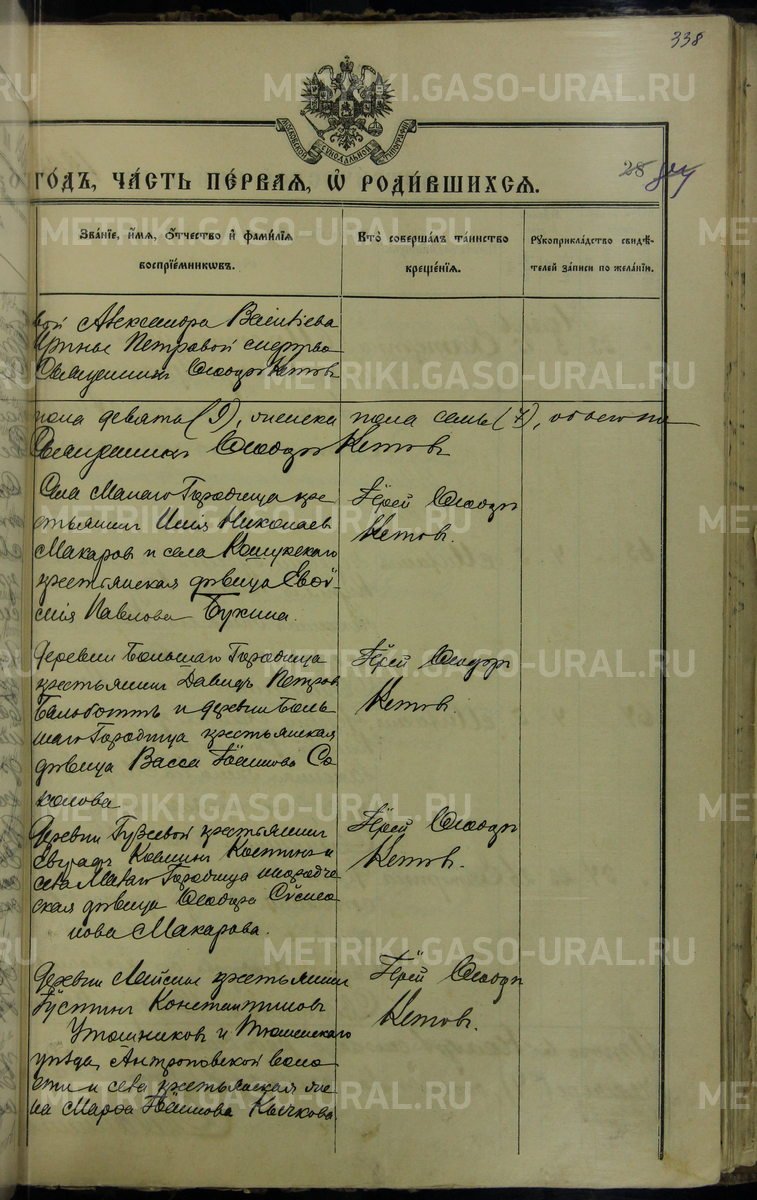 338
МОСКОВСКОЙ СѴНОДАЛЬНОЙ ТИПОГРАФІИ
28
ГОДЪ, ЧАСТЬ ПЕРВАЯ, Ѡ РОДИВШИХСЯ.
Званіе, имя, отчество и фамилія воспріемниковъ.
Кто совершалъ таинство крещенія.
Рукоприкладство свидѣтелей записи по желанію.
вой Александра Васильева
Ирины Петровой
Священникъ Ѳеодоръ Кетовъ
пола девять (9), женска пола семь (7), обоего
Священникъ Ѳеодоръ Кетовъ
Села Малаго Городища кре
стьянинъ Илія Николаевъ
Макаров и села Кошукскаго
крестьянская дѣвица Евѳи
мія Павлова Букина.
Іерей Ѳеодоръ
Кетовъ.
Деревни Большаго Городища
крестьянинъ Давидъ Петров
и деревни Боль
шаго Городища крестьянская
дѣвица Васса Іоаннова Со
колова
Іерей Ѳеодоръ
Кетовъ.
Деревни Гузеевой крестьянинъ
Костинъ и
села Малаго Городища
ская дѣвица Ѳеодора
нова Макарова.
Іерей Ѳеодоръ
Кетовъ.
Деревни крестьянинъ
Іустинъ Константиновъ
Утошников и Тюменскаго
уѣзда, Антроповской воло
сти и села крестьянская же
на Марѳа Іоаннова Кычкова
Іерей Ѳеодоръ
Кетовъ.
METRIKI.GASO-URAL.RU